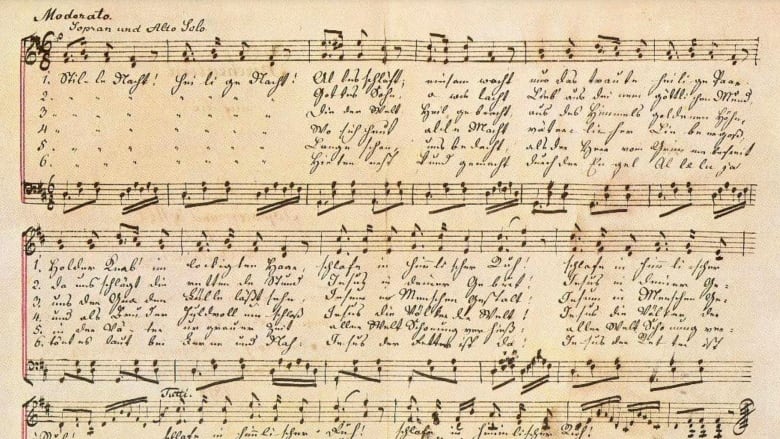 Moderato.
Sopran und Alto Solo
1. Stil-le Nacht! Hei li ge Nacht! Al les schläft; einsam wacht nur das traute hei li ge Paar.
2. " " " " " " Gottes Sohn! o wie lacht Lieb aus dei nem göttlichen Mund,
3 " " " " " " Die der Welt Heil gebracht, aus des Himmels goldenen Höhn,
4 " " " " " " Wo sich heut alle Macht väter-licher Liebe ergoß,
5 " " " " " " Lange schon uns bedacht, als der Herr vom Grimme befreit
6. " " " " " " Hirten erst kund gemacht durch der En gel Al le lu ja
1. Holder Knab' im lockigten Haar, schlafe in himmlischer Ruh! schlafe in himmli scher
2. Da uns schlägt die rettende Stund Jesus in deiner Geburt! Jesus in deiner Ge-
3 uns der Gna den Fülle läßt sehn, Jesum in Menschen Gestalt! Jesum in Menschen Ge-
4 und als Bruder huldvoll umschloß Jesus die Völker der Welt! Jesus die Völker der
5 in der Vä ter ur grauer Zeit aller Welt Schonung verhieß: aller Welt Schonung ver-
6 tönt es laut bei Ferne und Nah, Jesus der Retter ist da! Jesus der Ret ter ist
Tutti.
Ruh! schlafe in himmlischer Ruh! schlafe in himmlischer Ruh!